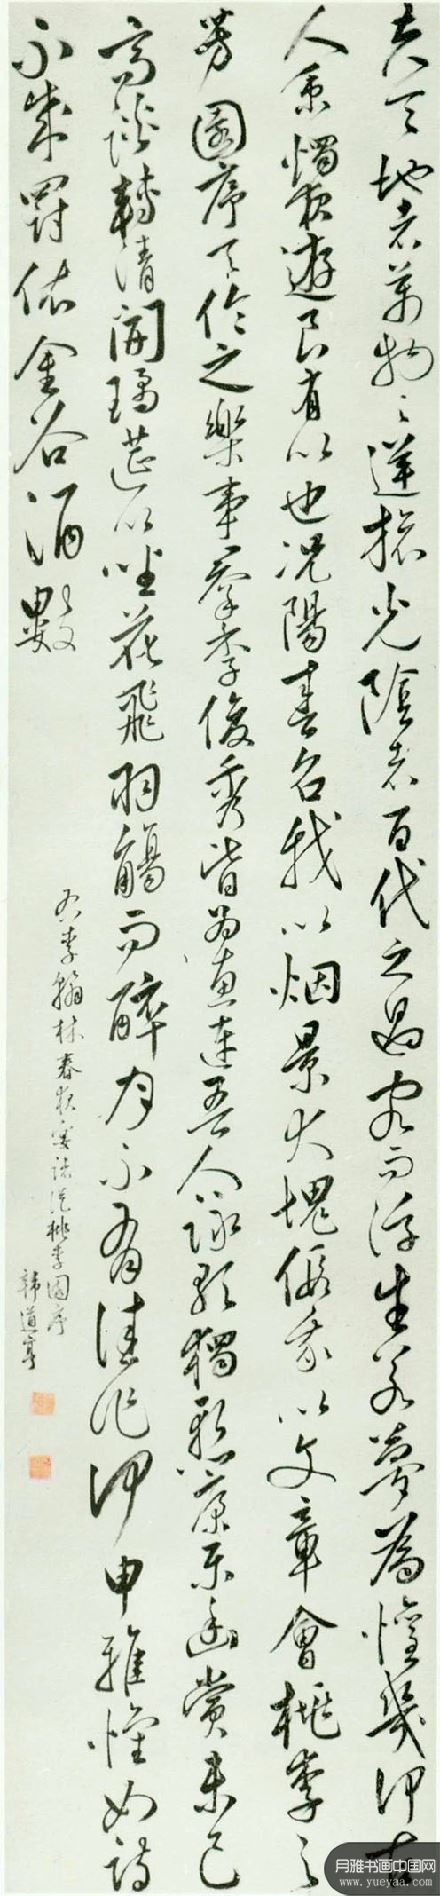 夫天地者萬物之逆旅光陰者百代之過客而浮生若夢為懽幾何古
人秉燭夜遊良有以也况陽春召我以烟景大塊假我以文章會桃李之
芳園序天倫之樂事羣季俊秀皆為惠連吾人詠歌獨慙康樂幽賞未已
高談轉清開瓊筵以坐花飛羽觴而醉月不有佳作何申雅懷如詩
不成罰依金谷酒數
右李翰林春夜宴諸從桃李園序
韓道亨
月雅书画中国网
www.yueyaa.com